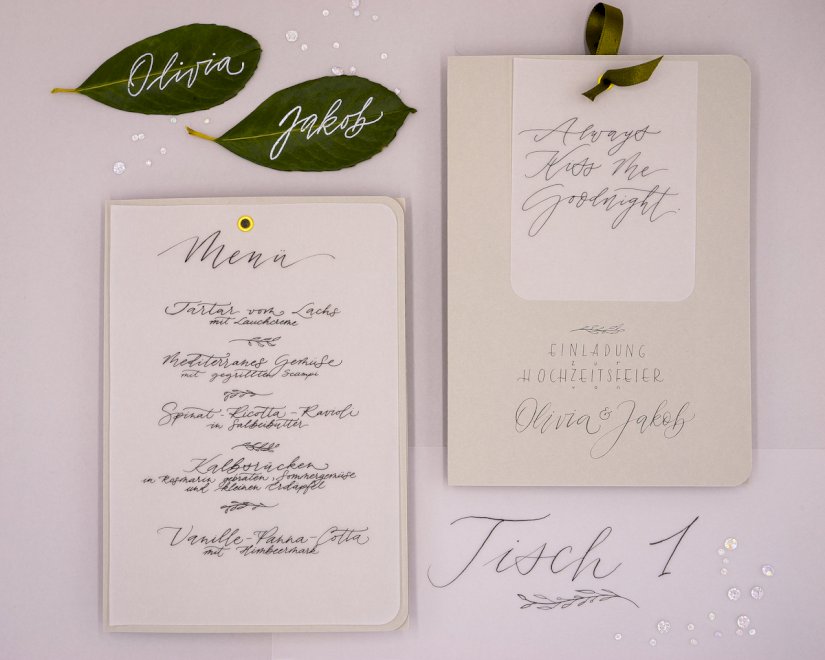 Olivia
Jakob
Always
Kiss Me
Goodnight.
EINLADUNG
ZUR
HOCHZEITSFEIER
VON
Olivia & Jakob
Menü
Tartar vom Lachs
mit Lauchcreme
Mediterranes Gemüse
mit gegrillten Scampi
Spinat-Ricotta-Ravioli
in Salbeibutter
Kalbsrücken
in Rosmarin gebraten, Sommergemüse
und kleinen Erdäpfel
Vanille-Panna-Cotta
mit Himbeermark
Tisch 1